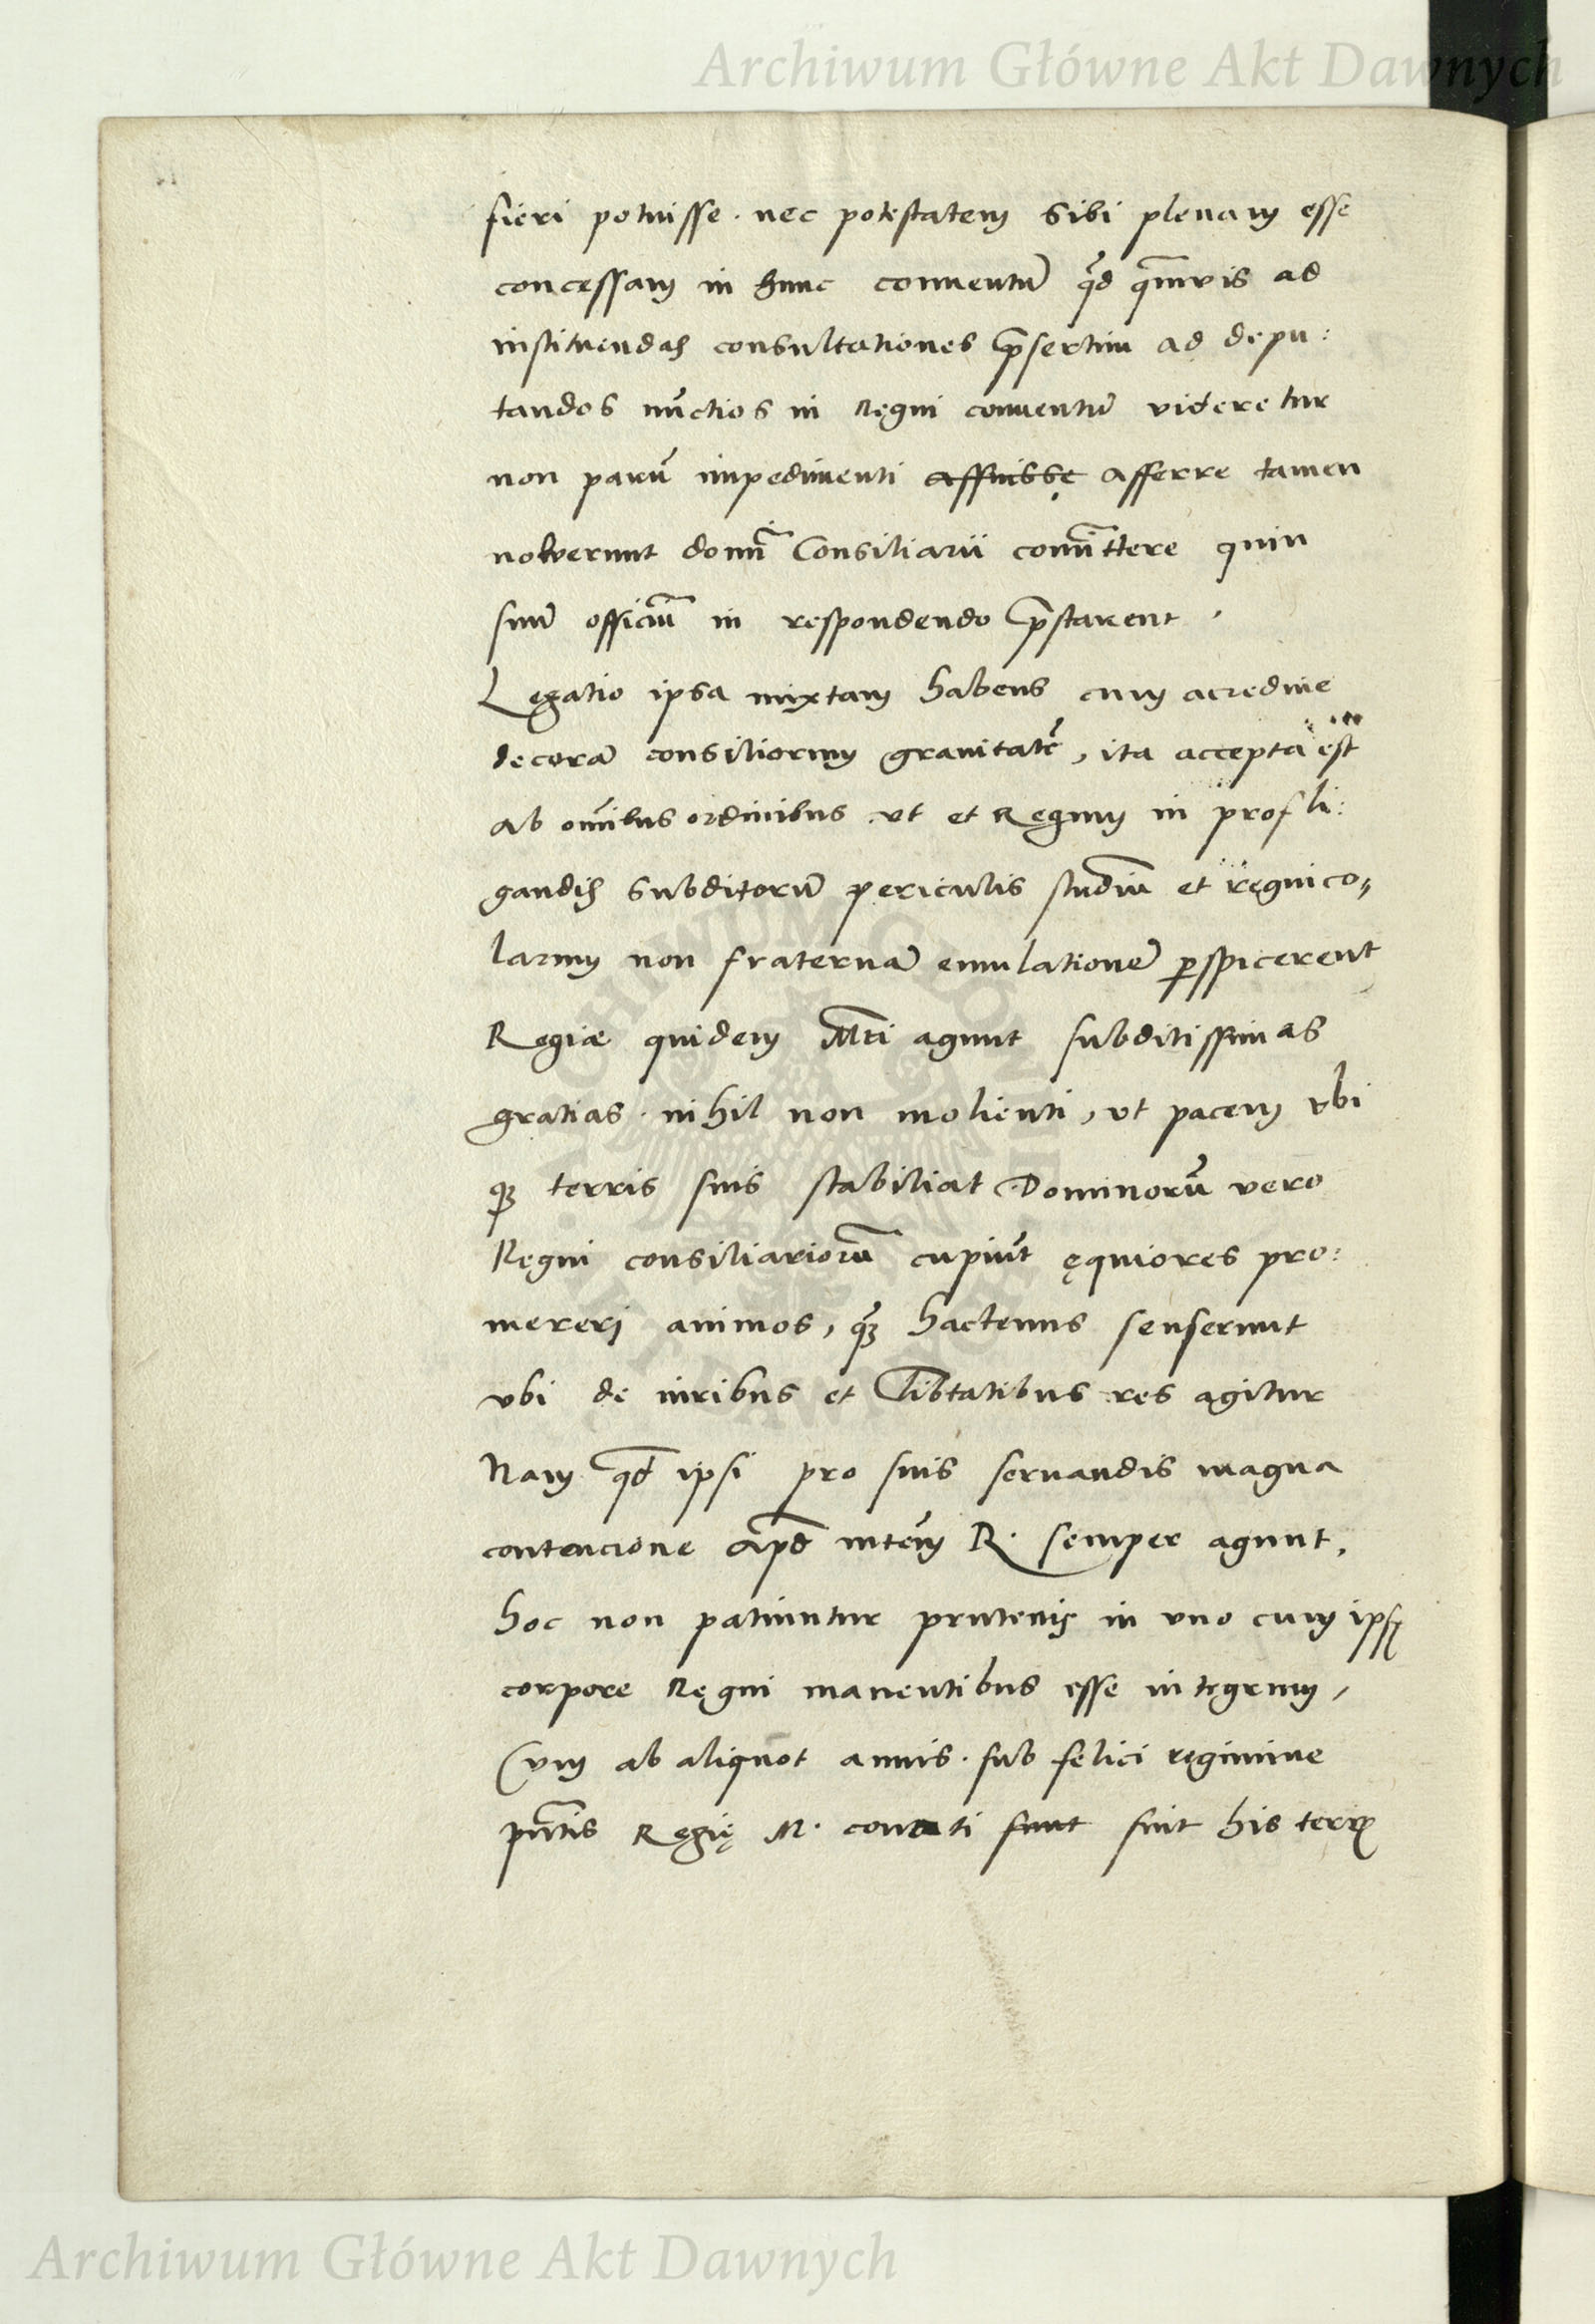 Archiwum Główne Akt Dawnych
fieri potuisse. nec potestatem sibi plenam esse
concessam in hunc conuentū qd̄ qm̄uis ad
instituendas consultationes p̄sertim ad depu:
tandos nūctios in Regni conuentū videretur
non parū impedimenti affuisse afferre tamen
noluerunt domī Consiliarii com̄ittere quin
suū officiū in respondendo p̄starent.
Legatio ipsa mixtam habens cum acredine
decorā consiliorum grauitatē, ita accepta est
ab om̄ibus ordinibus vt et Regum in profli:
gandis subditorū periculis studiū et ręgnico„
larum non fraternā emulationē ꝑspicerent
Regiæ quidem Mti agunt subditissimas
gratias. nihil non molienti, vt pacem vbi
qꝫ terris suis stabiliat Dominorū vero
Ręgni consiliariorū cupiūt ęquiores pro:
mereri animos, qꝫ̄ hactenus senserunt
vbi de iuribus et lib̄tatibus res agitur
Nam qd̄ ipsi pro suis seruandis magna
contencione apd̄ mtēm R. semper agunt,
hoc non patiuntur prutenis in vno cum ipsis
corpore Ręgni manentibus esse intęgrum,
Cum ab aliquot annis. sub felici ręgimine
pn̄tis Ręgię M. conati sunt sint his terris
Archiwum Główne Akt Dawnych